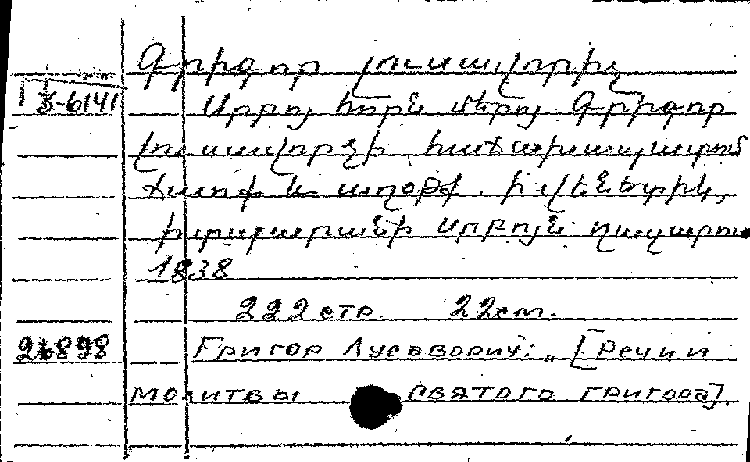 Գրիգոր լուսավորիչ
Ֆ-6141 Սրբոյ հօրն մերոյ Գրիգոր
լուսաւորչի հաճախապատում
ճառք և աղօթք. ի վենետիկ,
ի տպարանի սրբոյն ղազարու
1838
222 стр. 22 cm.
26898 Григор Лусаворич: „[Речи и
молитвы Святого Григора].